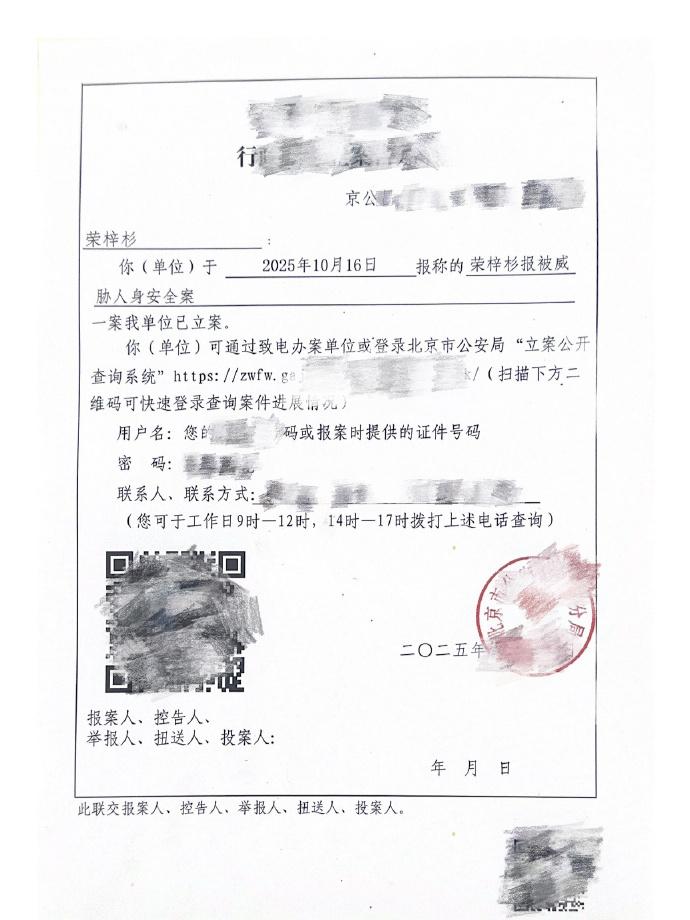 行
京公
荣梓杉：
你（单位）于 2025年10月16日 报称的 荣梓杉报被威
胁人身安全案
一案我单位已立案。
你（单位）可通过致电办案单位或登录北京市公安局“立案公开
查询系统”https://zwfw.ga k/（扫描下方二
维码可快速登录查询案件进展情况）
用户名：您的 码或报案时提供的证件号码
密 码：
联系人、联系方式：
（您可于工作日9时—12时，14时—17时拨打上述电话查询）
北京市 分局
二〇二五年
报案人、控告人、
举报人、扭送人、投案人：
年 月 日
此联交报案人、控告人、举报人、扭送人、投案人。